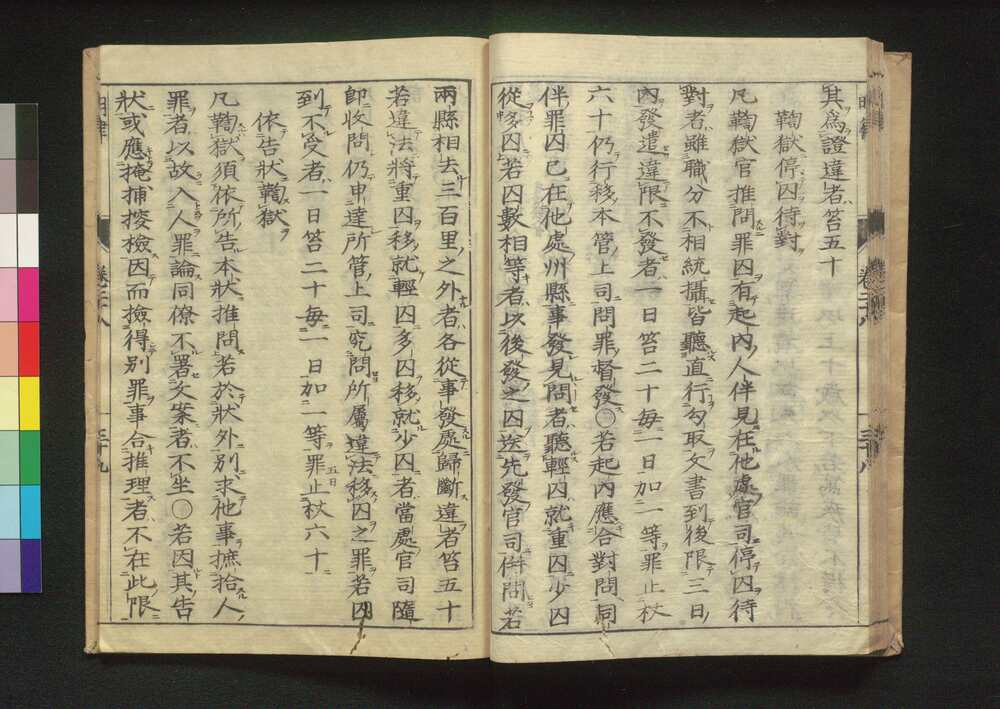 其爲證違者笞五十
鞫獄停囚待對
凡鞫獄官推問罪囚有起內人伴見在他處官司停囚待
對者雖職分不相統攝皆聽直行勾取文書到後限三日
內發遣違限不發者一日笞二十每一日加一等罪止杖
六十仍行移本管上司問罪督發〇若起內應合對問同
伴罪囚已在他處州縣事發見問者聽輕囚就重囚少囚
從多囚若囚數相等者以後發之囚送先發官司併問若
兩縣相去三百里之外者各從事發處歸斷違者笞五十
若違法將重囚移就輕囚多囚移就少囚者當處官司隨
卽收問仍申達所管上司究問所屬違法移囚之罪若囚
到不受者一日笞二十每一日加一等罪止杖六十
依告狀鞫獄
凡鞫獄須依所告本狀推問若於狀外別求他事摭拾人
罪者以故入人罪論同僚不署文案者不坐〇若因其告
狀或應掩捕搜檢因而檢得別罪事合推理者不在此限
明律
卷二十八
三十九